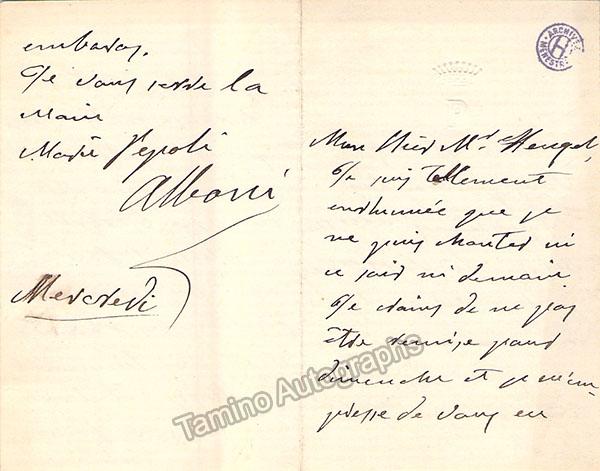 Mon cher Mr. Heugel,
Je suis tellement
enrhumée que je
ne puis chanter ni
ce soir ni demain.
Je crains de ne pas
être remise pour
dimanche et je m'em-
presse de vous en
embaras.
Je vous serre la
main
Marie Pepoli
Alboni
Mercredi
ARCHIVES
MENESTREL
H
P
Tamino Autographs